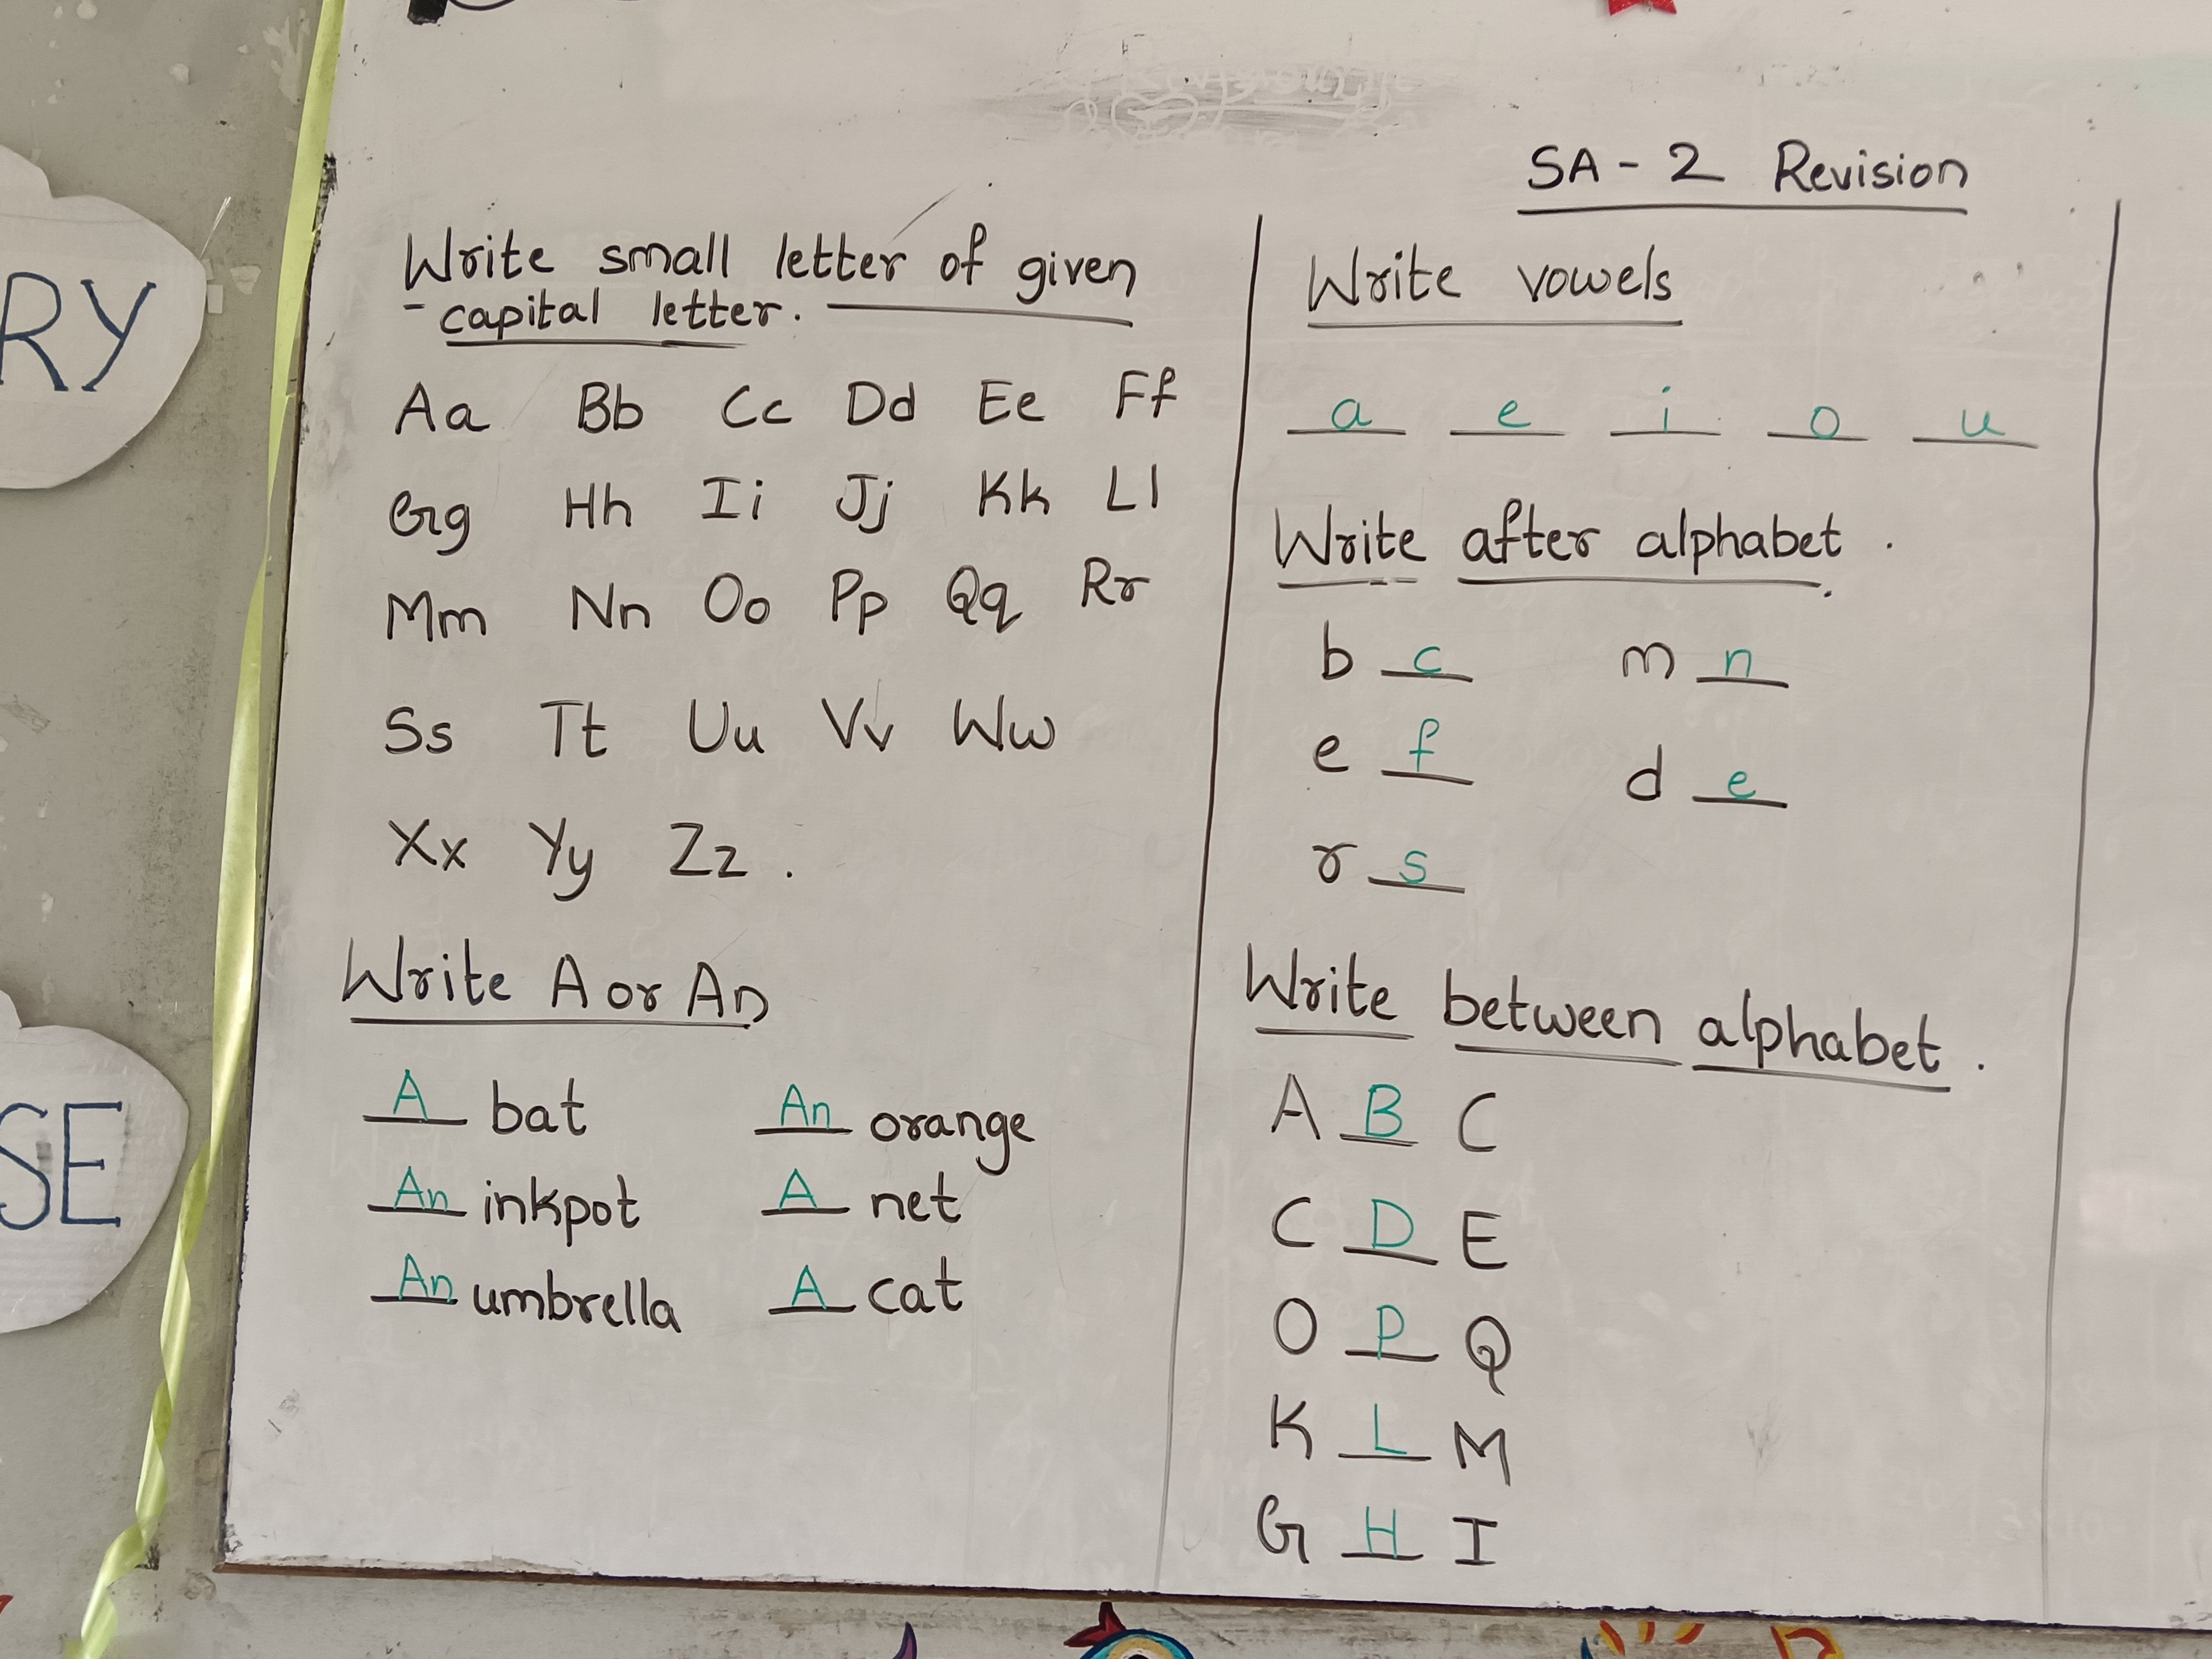 SA - 2 Revision
Write small letter of given
- capital letter.
Aa Bb Cc Dd Ee Ff
Gg Hh Ii Jj Kk Ll
Mm Nn Oo Pp Qq Rr
Ss Tt Uu Vv Ww
Xx Yy Zz .
Write A or An
A bat An orange
An inkpot A net
An umbrella A cat
Write vowels
a e i o u
Write after alphabet .
b c m n
e f d e
r s
Write between alphabet .
A B C
C D E
O P Q
K L M
G H I
RY
SE